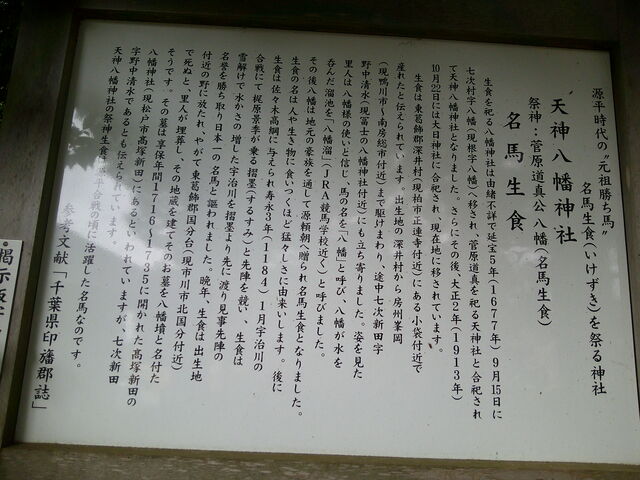 源平時代の"元祖勝ち馬"
名馬生食(いけずき)を祭る神社
天神八幡神社
祭神：菅原道真公 八幡(名馬生食)
名馬生食
生食を祀る八幡神社は由緒不詳で延宝5年(1677年) 9月15日に
七次村字八幡(現根字八幡)へ移され、菅原道真を祀る天神社と合祀され
て天神八幡神社となりました。さらにその後、大正2年(1913年)
10月22日には大日神社に合祀され、現在地に移されています。
生食は東葛飾郡深井村(現柏市正連寺付近)にある小袋付近で
産れたと伝えられています。出生地の深井村から房州峯岡
(現鴨川市～南房総市付近)まで駆けまわり、途中七次新田字
野中清水(現富士の八幡神社付近)にも立ち寄りました。姿を見た
里人は八幡様の使いと信じ、馬の名を「八幡」と呼び、八幡が水を
呑んだ溜池を「八幡溜」(JRA競馬学校近く)と呼びました。
その後八幡は地元の豪族を通して源頼朝へ贈られ名馬生食となりました。
生食の名は人や生き物に食いつくほど猛々しさに由来いします。後に
生食は佐々木高綱に与えられ寿永3年(1184) 1月宇治川の
合戦にて梶原景季が乗る摺墨(するすみ)と先陣を競い、生食は
雪解けで水かさの増した宇治川を摺墨より先に渡り見事先陣の
名誉を勝ち取り日本一の名馬と謳われました。晩年、生食は出生地
付近の野に放たれ、やがて東葛飾郡国分台(現市川市北国分付近)
で死ぬと、里人が埋葬し、その地蔵を建てそのお墓を八幡墳と名付た
そうです。その墓は享保年間1716～1735に開かれた高塚新田の
八幡神社(現松戸市高塚新田)にあるといわれていますが、七次新田
字野中清水であるとも伝えられています。
天神八幡神社の祭神生食は源平合戦の頃に活躍した名馬なのです。
参考文献「千葉県印旛郡誌」
掲示板